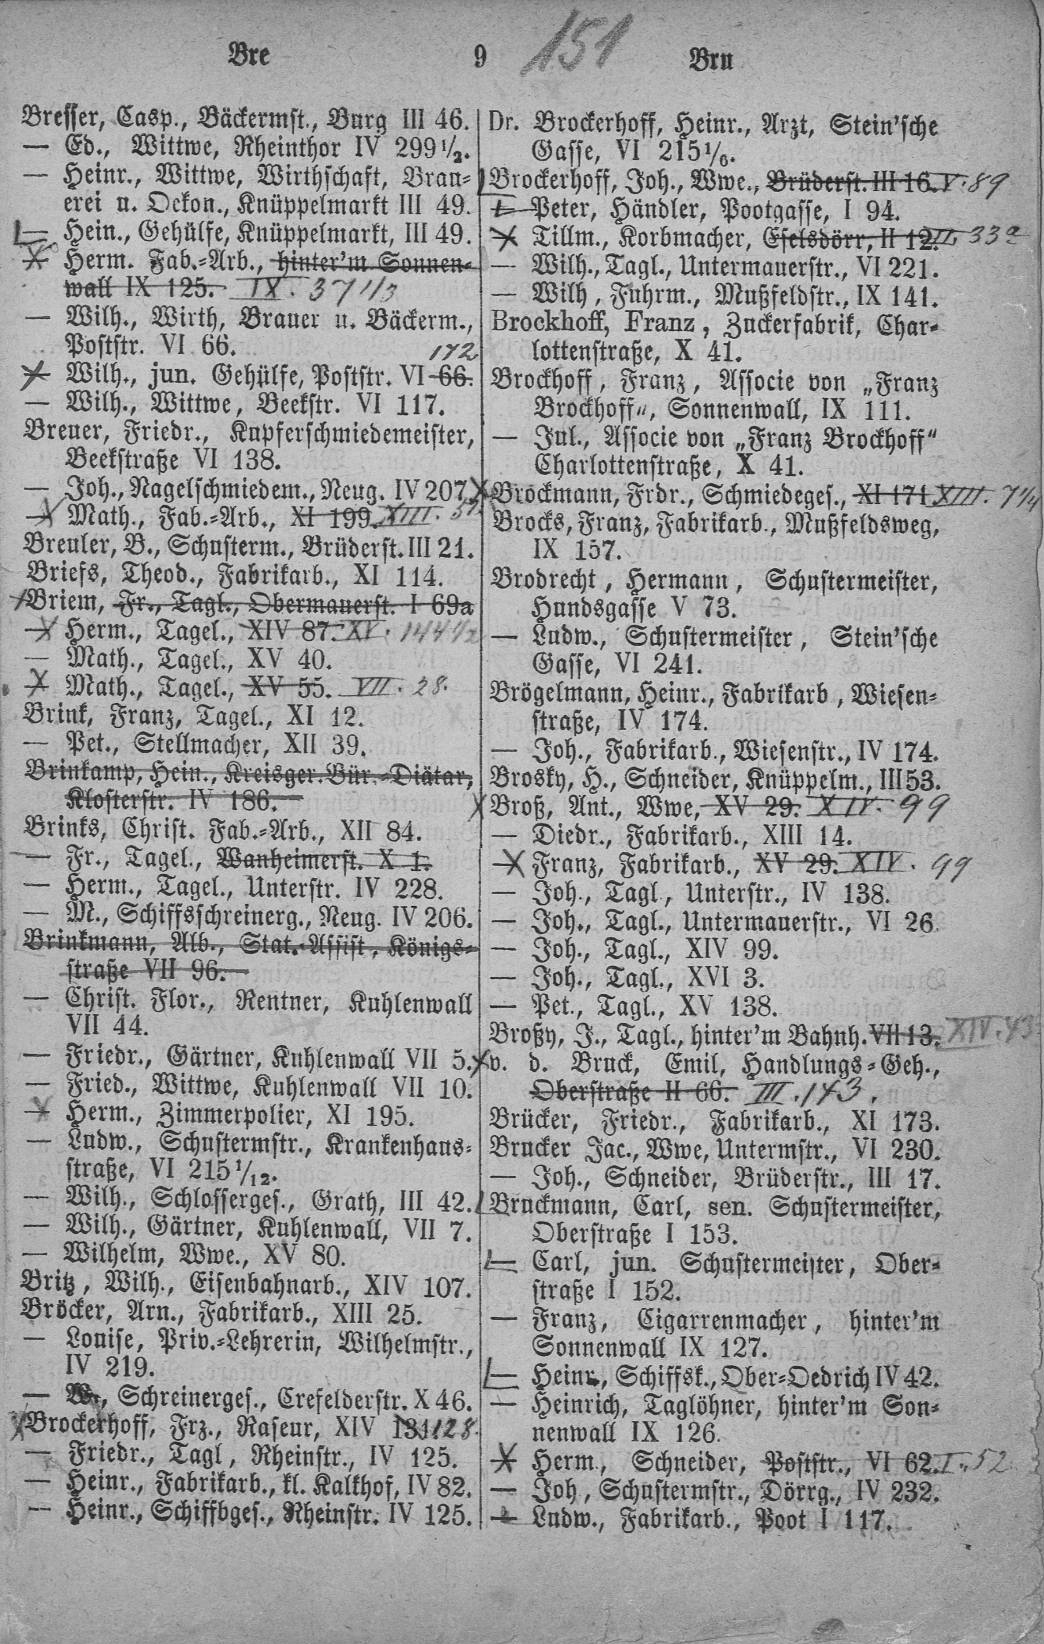 Bre 9 151 Bru
Bresser, Casp., Bäckermst., Burg III 46.
— Ed., Wittwe, Rheinthor IV 299 1/2.
— Heinr., Wittwe, Wirthschaft, Brau-
erei u. Oekon., Knüppelmarkt III 49.
— Hein., Gehülfe, Knüppelmarkt, III 49.
— Herm. Fab.-Arb., hinter'm Sonnen-
wall IX 125. IX. 37 1/3
— Wilh., Wirth, Brauer u. Bäckerm.,
Poststr. VI 66.
172
— Wilh., jun. Gehülfe, Poststr. VI 66.
— Wilh., Wittwe, Beekstr. VI 117.
Breuer, Friedr., Kupferschmiedemeister,
Beekstraße VI 138.
— Joh., Nagelschmiedem., Neug. IV 207.
— Math., Fab.-Arb., XI 199. XIII. 51.
Breuler, B., Schusterm., Brüderst. III 21.
Briefs, Theod., Fabrikarb., XI 114.
Briem, Fr., Tagl., Obermauerst. I 69a
— Herm., Tagel., XIV 87. XV. 144 1/2
— Math., Tagel., XV 40.
— Math., Tagel., XV 55. VII. 28.
Brink, Franz, Tagel., XI 12.
— Pet., Stellmacher, XII 39.
Brinkamp, Hein., Kreisger. Bür.-Diätar,
Klosterstr. IV 186.
Brinks, Christ. Fab.-Arb., XII 84.
— Fr., Tagel., Wanheimerst. X 1.
— Herm., Tagel., Unterstr. IV 228.
— M., Schiffsschreinerg., Neug. IV 206.
Brinkmann, Alb., Stat.-Assist, Königs-
straße VII 96.
— Christ. Flor., Rentner, Kuhlenwall
VII 44.
— Friedr., Gärtner, Kuhlenwall VII 5.
— Fried., Wittwe, Kuhlenwall VII 10.
— Herm., Zimmerpolier, XI 195.
— Ludw., Schustermstr., Krankenhaus-
straße, VI 215 1/12.
— Wilh., Schlosserges., Grath, III 42.
— Wilh., Gärtner, Kuhlenwall, VII 7.
— Wilhelm, Wwe., XV 80.
Britz, Wilh., Eisenbahnarb., XIV 107.
Bröcker, Arn., Fabrikarb., XIII 25.
— Louise, Priv.-Lehrerin, Wilhelmstr.,
IV 219.
— W., Schreinerges., Crefelderstr. X 46.
Brockerhoff, Frz., Raseur, XIV 131 128.
— Friedr., Tagl, Rheinstr., IV 125.
— Heinr., Fabrikarb., kl. Kalkhof, IV 82.
— Heinr., Schiffbges., Rheinstr. IV 125.
Dr. Brockerhoff, Heinr., Arzt, Stein'sche
Gasse, VI 215 1/6.
Brockerhoff, Joh., Wwe., Brüderst. III 16. V. 89
— Peter, Händler, Pootgasse, I 94.
— Tillm., Korbmacher, Eselsdörr, II 12. II. 33a
— Wilh., Tagl., Untermauerstr., VI 221.
— Wilh, Fuhrm., Mußfeldstr., IX 141.
Brockhoff, Franz, Zuckerfabrik, Char-
lottenstraße, X 41.
Brockhoff, Franz, Associe von „Franz
Brockhoff“, Sonnenwall, IX 111.
— Jul., Associe von „Franz Brockhoff“
Charlottenstraße, X 41.
Bröckmann, Frdr., Schmiedeges., XI 171 XIII. 7 1/4
Brocks, Franz, Fabrikarb., Mußfeldsweg,
IX 157.
Brodrecht, Hermann, Schustermeister,
Hundsgasse V 73.
— Ludw., Schustermeister, Stein'sche
Gasse, VI 241.
Brögelmann, Heinr., Fabrikarb, Wiesen-
straße, IV 174.
— Joh., Fabrikarb., Wiesenstr., IV 174.
Brosky, H., Schneider, Knüppelm., III 53.
Broß, Ant., Wwe, XV 29. XIV. 99
— Diedr., Fabrikarb., XIII 14.
— Franz, Fabrikarb., XV 29. XIV. 99
— Joh., Tagl., Unterstr., IV 138.
— Joh., Tagl., Untermauerstr., VI 26
— Joh., Tagl., XIV 99.
— Joh., Tagl., XVI 3.
— Pet., Tagl., XV 138.
Broßy, J., Tagl., hinter'm Bahnh. VII 13. XIV. 43
v. d. Bruck, Emil, Handlungs-Geh.,
Oberstraße II 66. III. 143.
Brücker, Friedr., Fabrikarb., XI 173.
Brucker Jac., Wwe, Untermstr., VI 230.
— Joh., Schneider, Brüderstr., III 17.
Bruckmann, Carl, sen. Schustermeister,
Oberstraße I 153.
— Carl, jun. Schustermeister, Ober-
straße I 152.
— Franz, Cigarrenmacher, hinter'm
Sonnenwall IX 127.
— Heinr., Schiffsk., Ober-Oedrich IV 42.
— Heinrich, Taglöhner, hinter'm Son-
nenwall IX 126.
— Herm., Schneider, Poststr., VI 62. I. 52
— Joh, Schustermstr., Dörrg., IV 232.
— Ludw., Fabrikarb., Poot I 117.